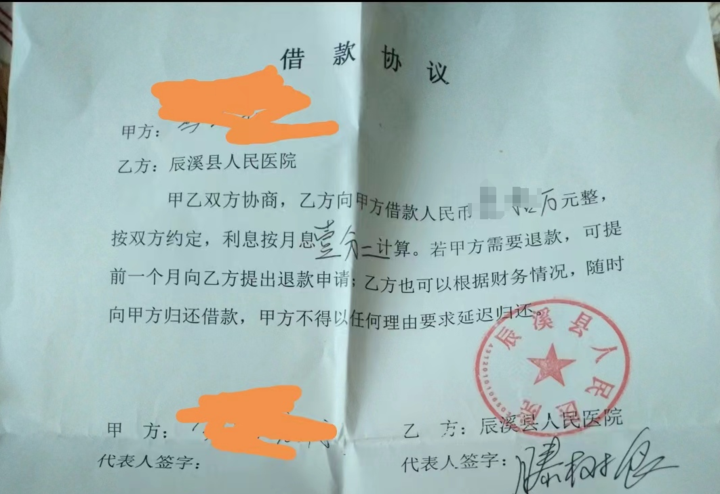 借款协议
甲方：
乙方：辰溪县人民医院
甲乙双方协商，乙方向甲方借款人民币 万元整，
按双方约定，利息按月息壹分二计算。若甲方需要退款，可提
前一个月向乙方提出退款申请；乙方也可以根据财务情况，随时
向甲方归还借款，甲方不得以任何理由要求延迟归还。
辰溪县人民医院
甲 方：
乙 方：辰溪县人民医院
代表人签字：
代表人签字：滕树